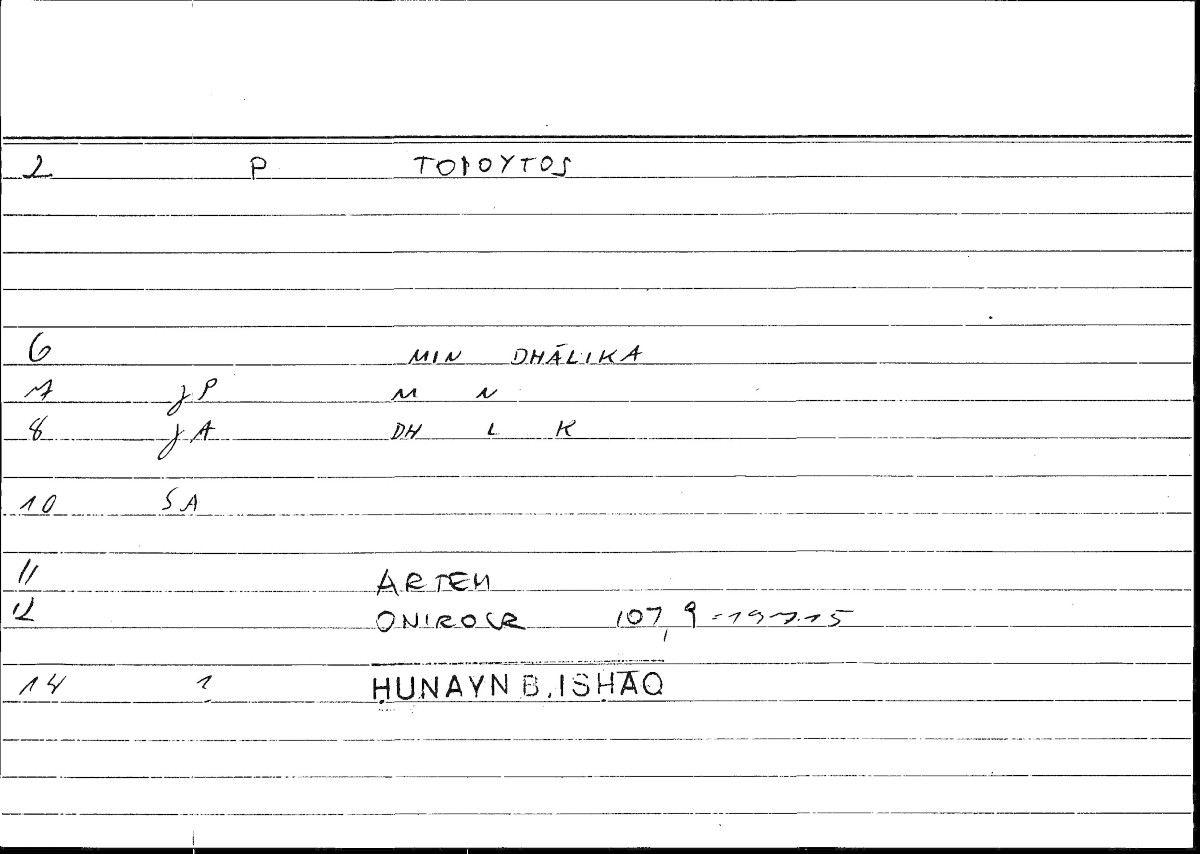 2 P ΤΟΙΟΥΤΟΣ
6 MIN DHĀLIKA
7 JP M N
8 JA DH L K
10 SA
11 ARTEM
12 ONIROCR 107,9 = 197.15
14 ? ḤUNAYN B. ISḤĀQ